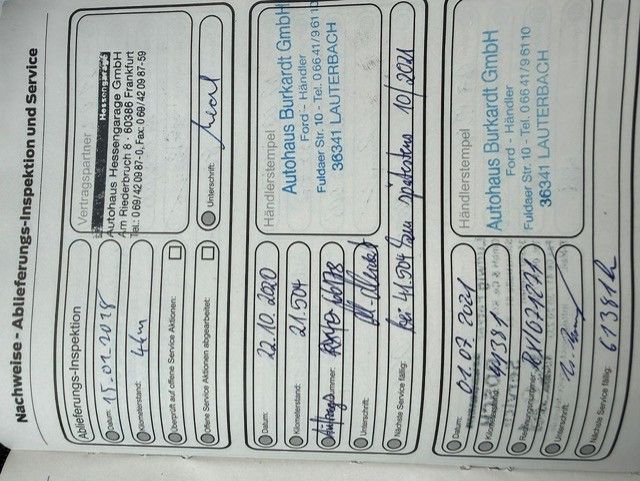 Nachweise - Ablieferungs-Inspektion und Service
Ablieferungs-Inspektion
Datum: 15.01.2018
Kilometerstand: 4 km
Überprüft auf offene Service Aktionen:
Offene Service Aktionen abgearbeitet:
Vertragspartner
Hessengarage
Autohaus Hessengarage GmbH
Am Riederbruch 8 · 60386 Frankfurt
Tel.: 0 69/42 09 87-0, Fax: 0 69/42 09 87-59
Unterschrift:
Datum: 22.10.2020
Kilometerstand: 21.504
Unterschrift:
Nächste Service fällig: bei 41.504 km spätestens 10/2021
Händlerstempel
Autohaus Burkardt GmbH
Ford - Händler
Fuldaer Str. 10 - Tel. 0 66 41/9 61 10
36341 LAUTERBACH
Datum: 01.07.2021
Kilometerstand: 41381
Unterschrift:
Nächste Service fällig: 61381k
Händlerstempel
Autohaus Burkardt GmbH
Ford - Händler
Fuldaer Str. 10 - Tel. 0 66 41/9 61 10
36341 LAUTERBACH